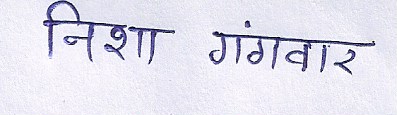 निशा गंगवार